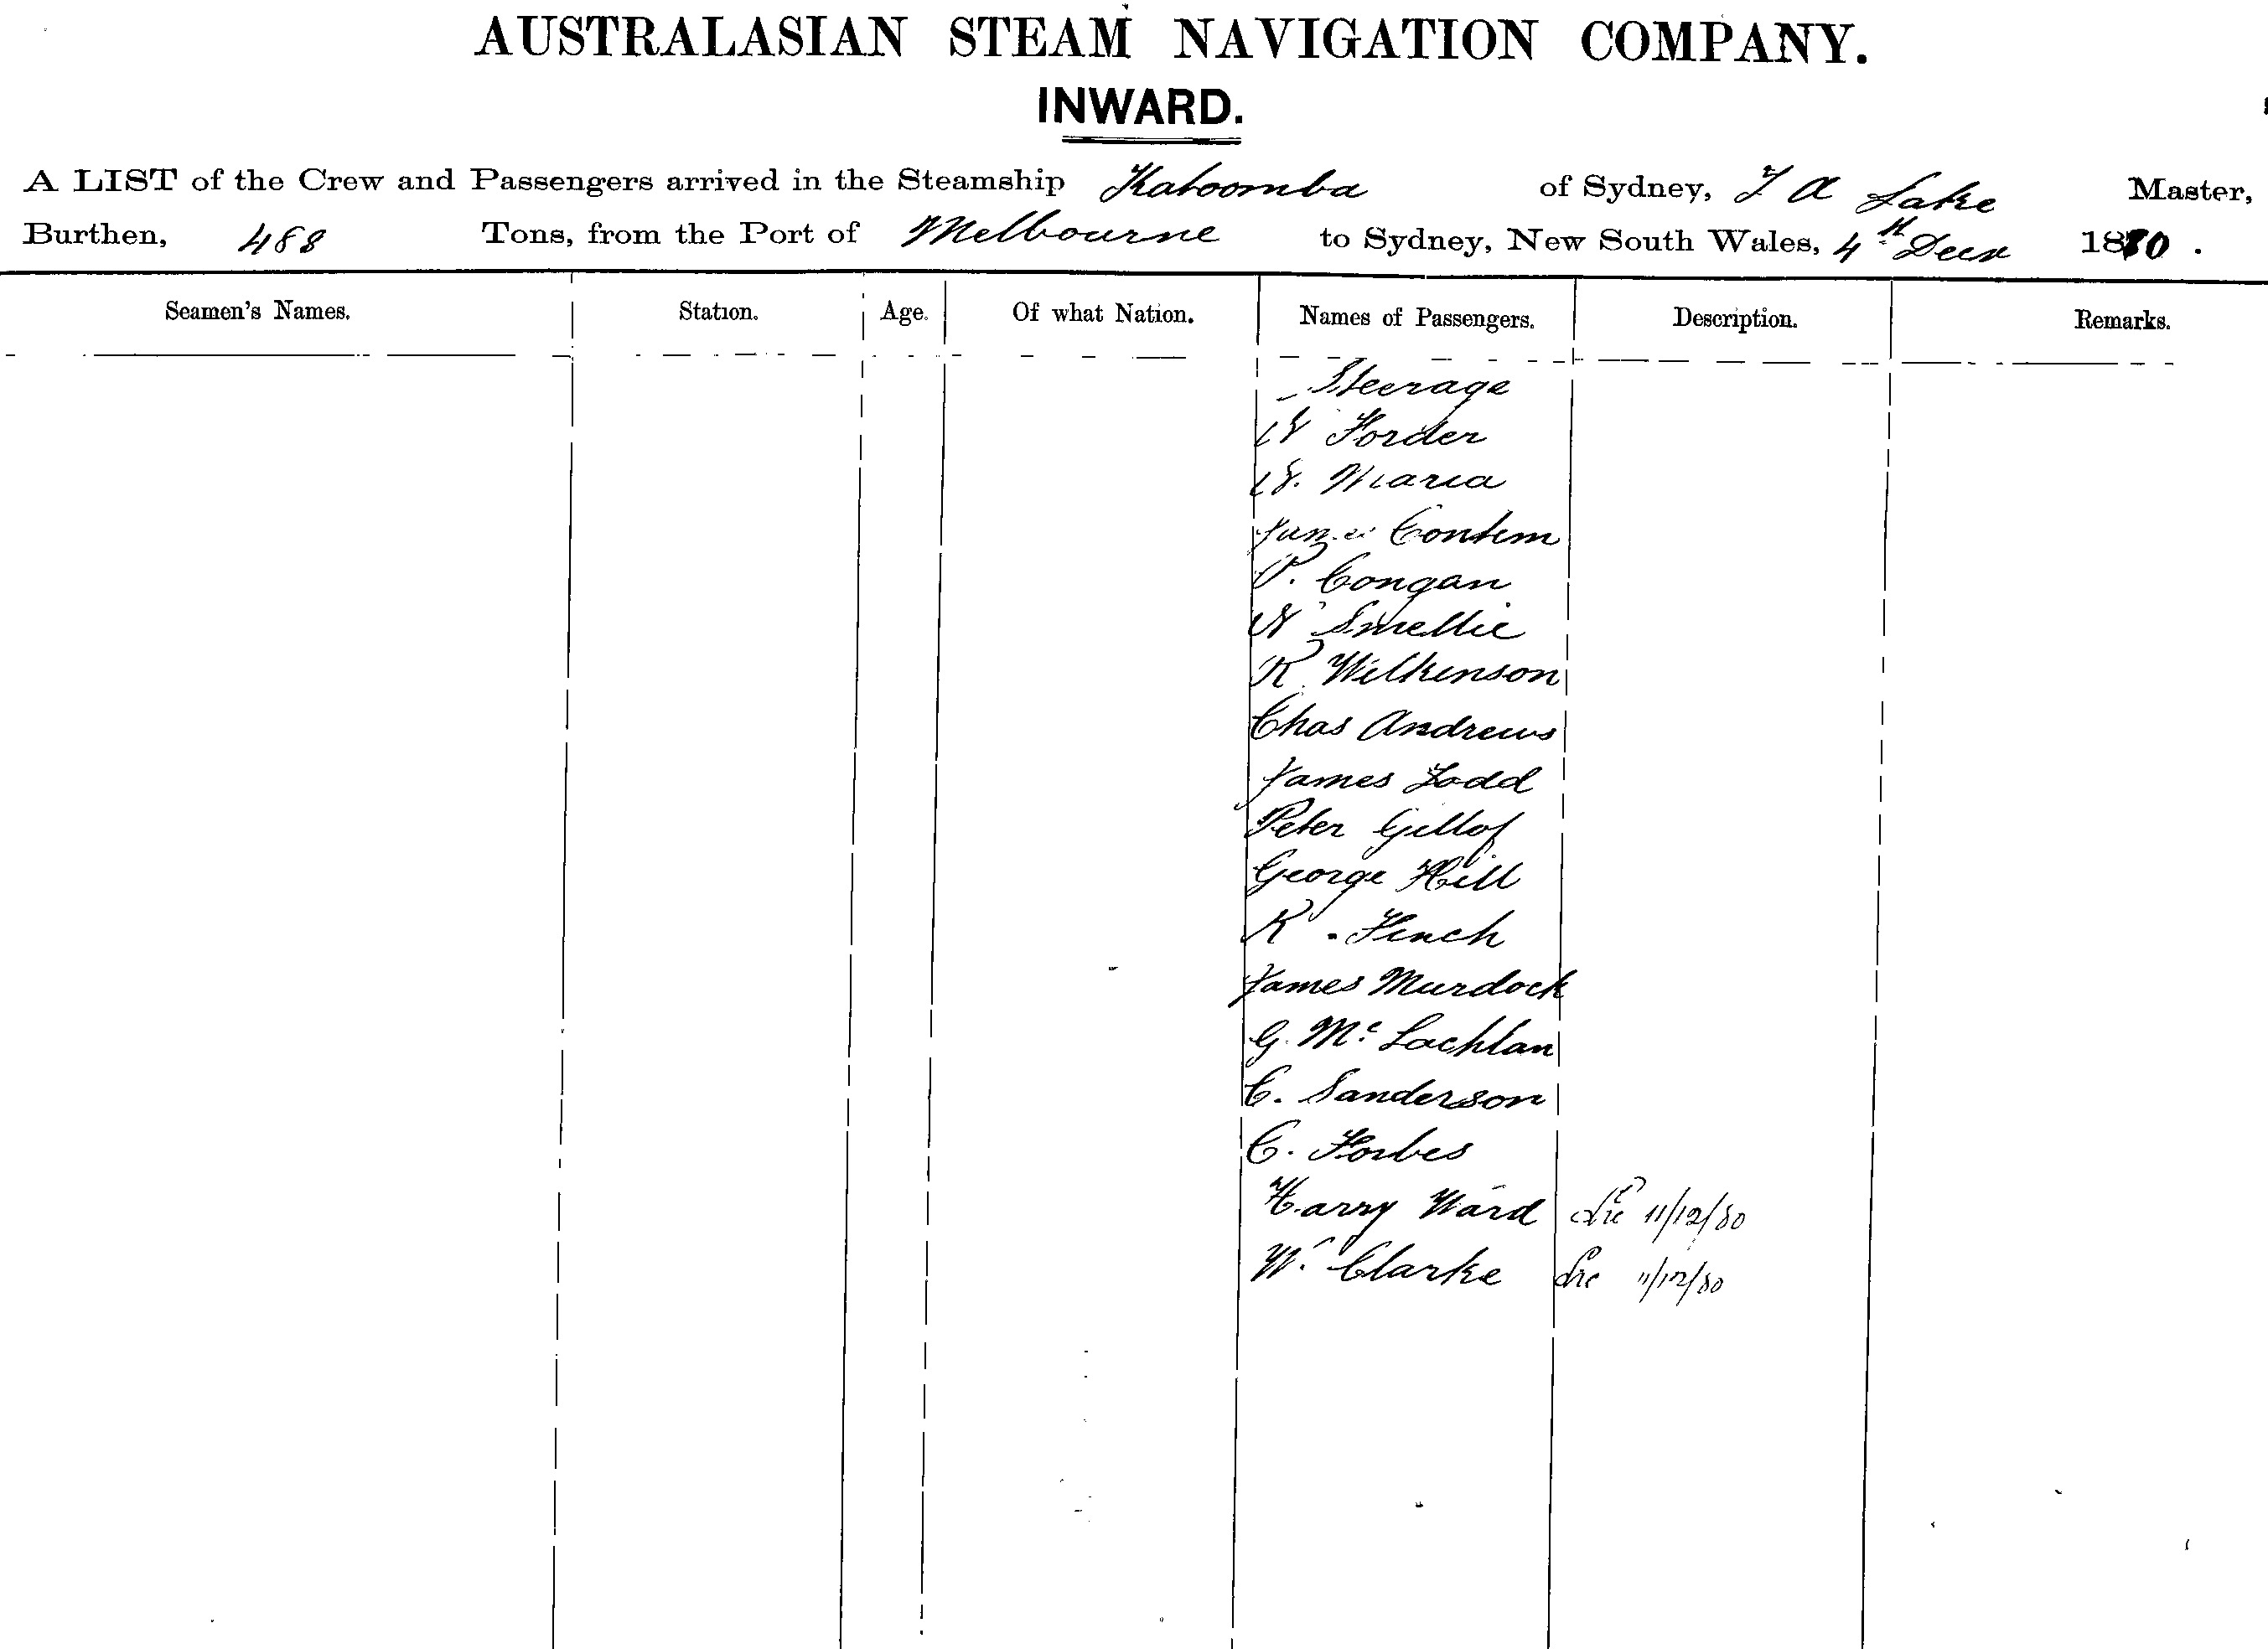 AUSTRALASIAN STEAM NAVIGATION COMPANY.
INWARD.
A LIST of the Crew and Passengers arrived in the Steamship Katoomba of Sydney, J A Lake Master,
Burthen, 488 Tons, from the Port of Melbourne to Sydney, New South Wales, 4th Decr 1880.
Seamen's Names. Station. Age. Of what Nation. Names of Passengers. Description. Remarks.
Steerage
Forder
Maria
Contem
P. Congan
Smellie
R Wilkinson
Chas Andrews
James Todd
Peter Gillof
George Hill
R. Finch
James Murdock
G. Mc Lachlan
C. Sanderson
C. Forbes
Harry Ward 11/12/80
W. Clarke 11/12/80